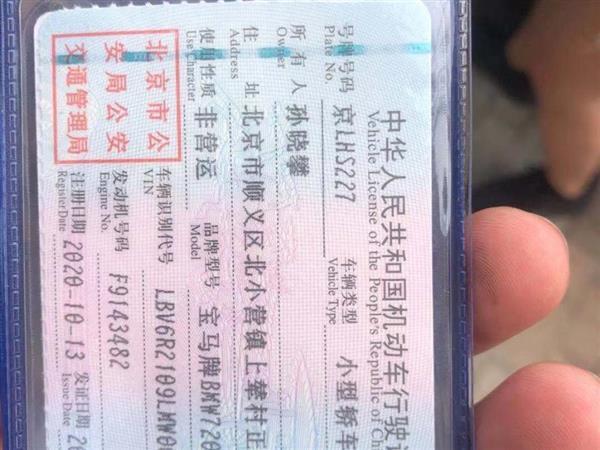 中华人民共和国机动车行驶
Vehicle License of the People's Republic of Ch
号牌号码 京LHS227 车辆类型 小型轿车
Plate No. Vehicle Type
所有人 孙晓攀
Owner
住址 北京市顺义区北小营镇上辇村正
Address
使用性质 非营运 品牌型号 宝马牌BMW720
Use Character Model
北京市公
安局公安
交通管理局
车辆识别代号 LBV6R2109LMW0
VIN
发动机号码 F9143482
Engine No.
注册日期 2020-10-13 发证日期 20
Register Date Issue Date